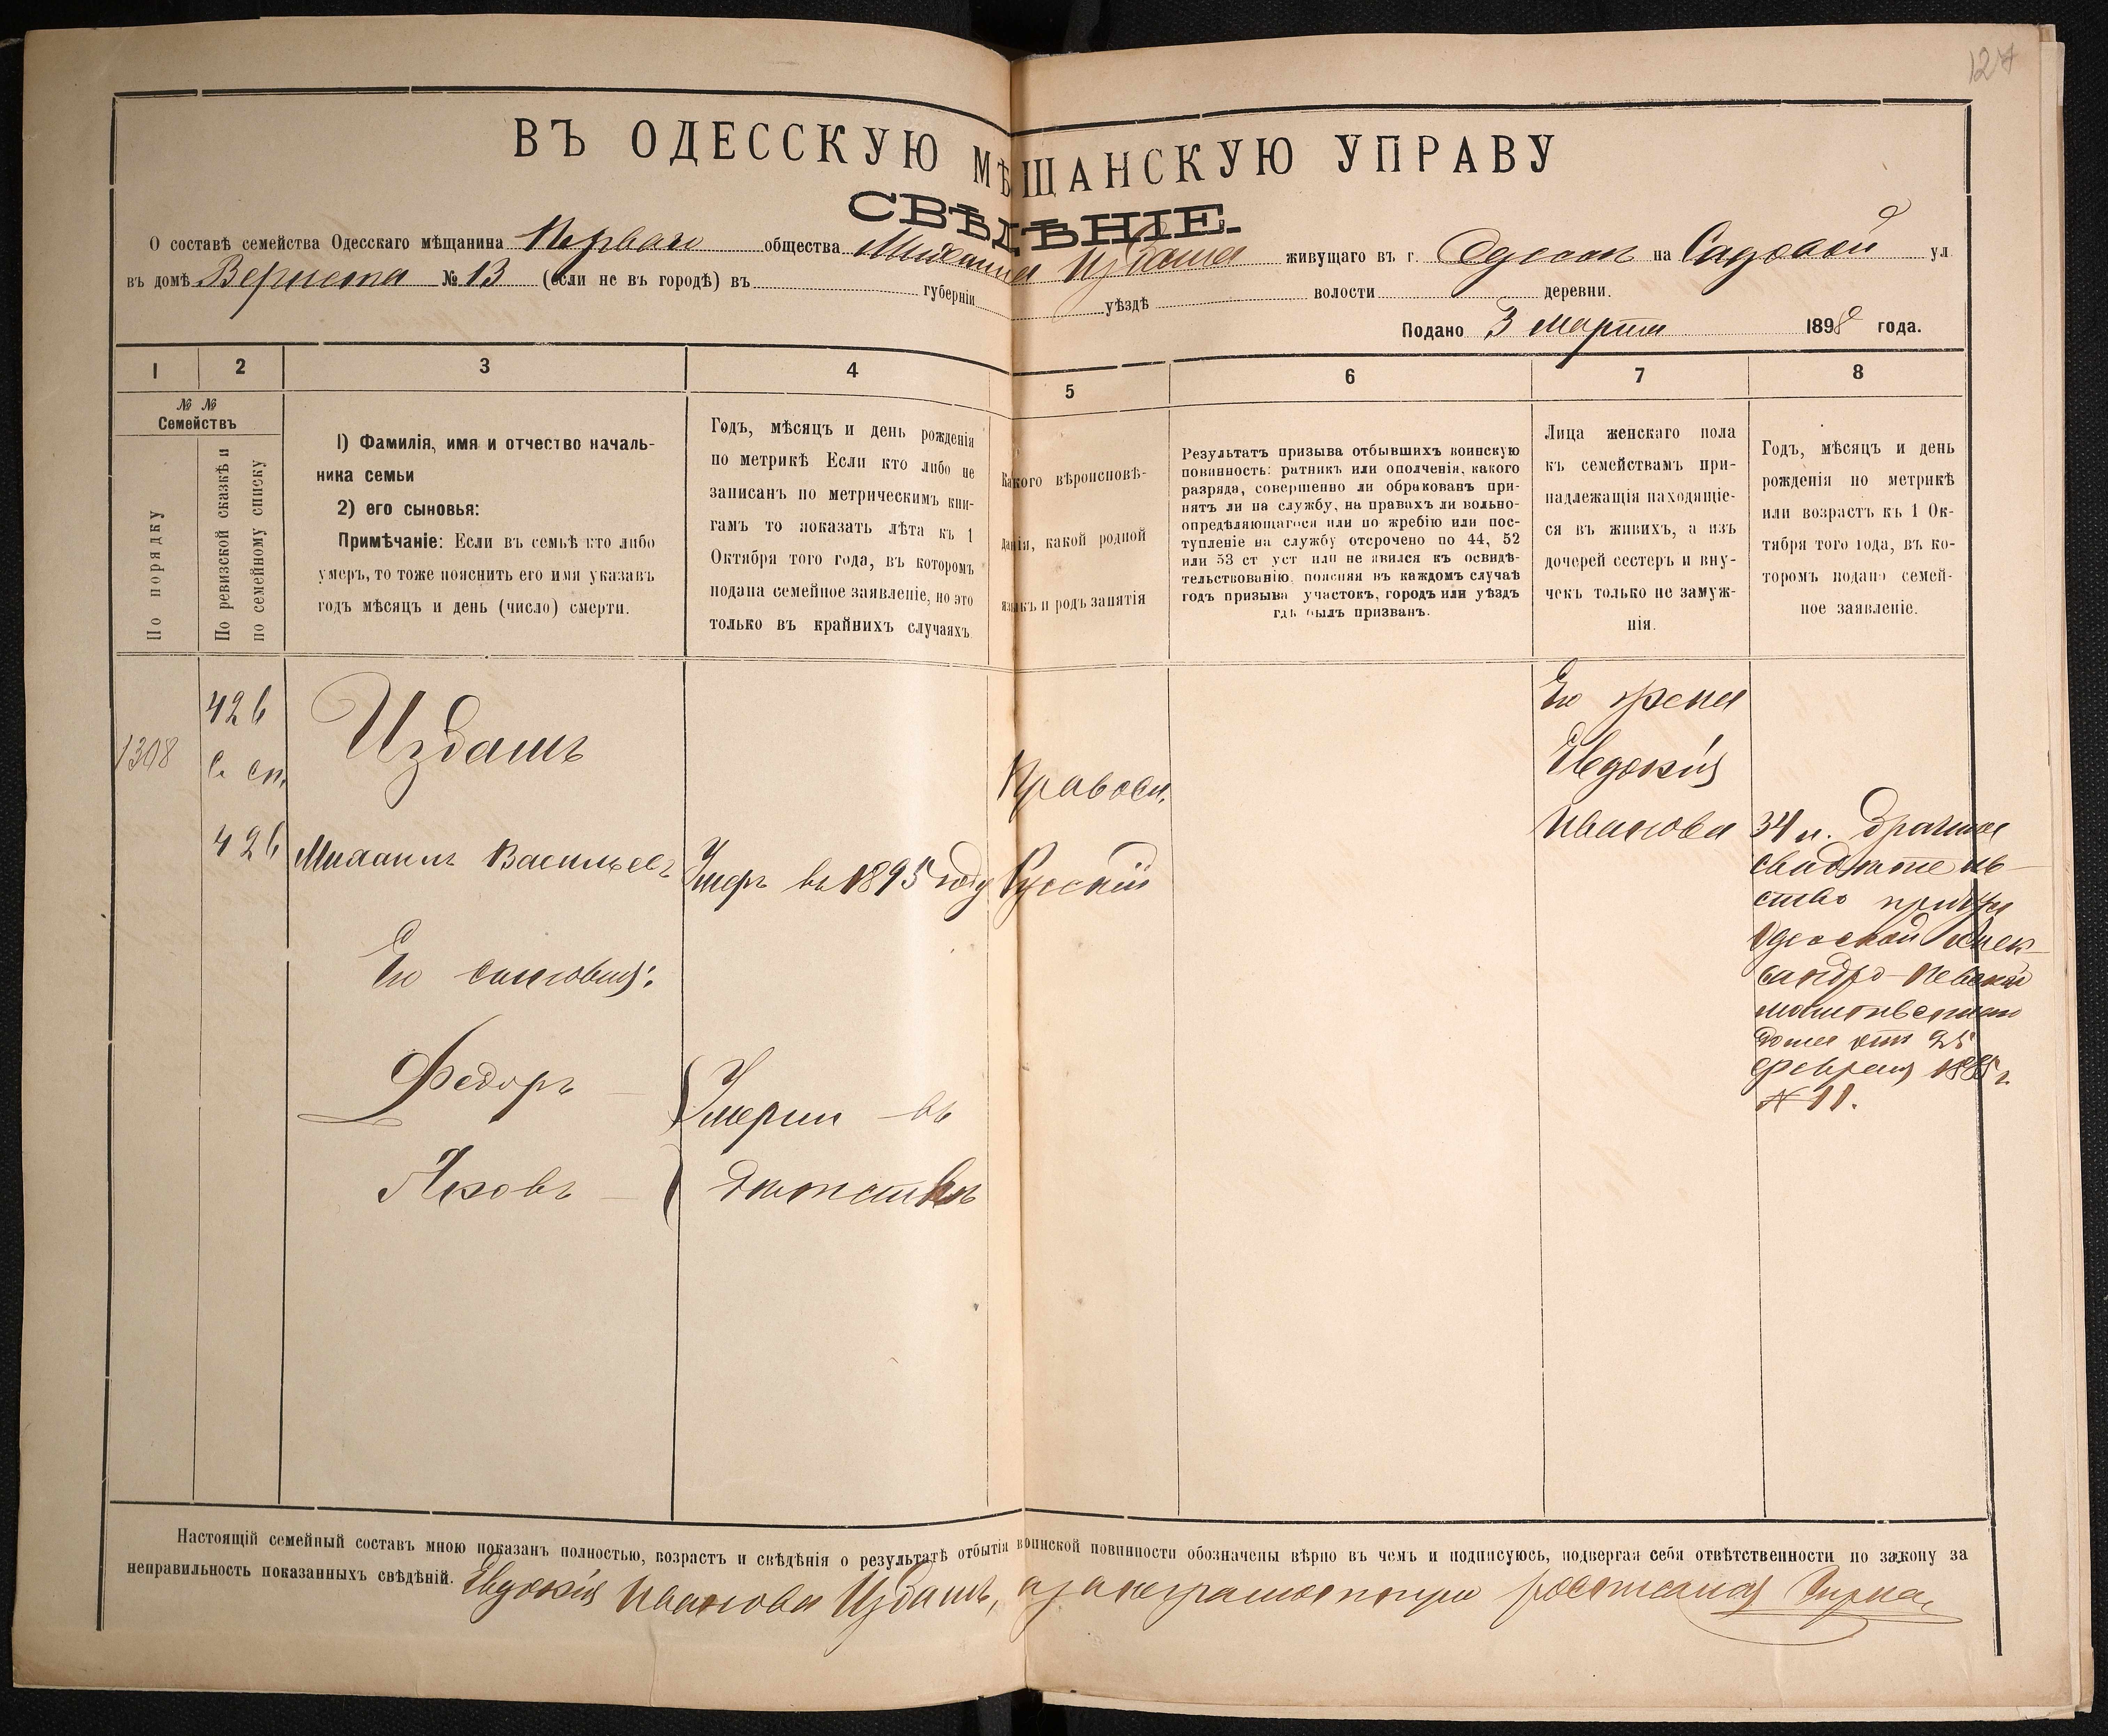 127
ВЪ ОДЕССКУЮ МѢЩАНСКУЮ УПРАВУ
СВѢДѢНІЕ.
О составѣ семейства Одесскаго мѣщанина Перваго общества Михаила Издаша живущаго въ г. Одессѣ на Садовой ул
въ домѣ № 13 (если не въ городѣ) въ губерніи уѣздѣ волости деревни.
Подано 3 Марта 1898 года.
1 2 3 4 5 6 7 8
№ №
Семействъ
По порядку
По ревизской сказкѣ и
по семейному списку
1) Фамилія, имя и отчество началь-
ника семьи
2) его сыновья:
Примѣчаніе: Если въ семьѣ кто либо
умеръ, то тоже пояснить его имя указавъ
годъ мѣсяцъ и день (число) смерти.
Годъ, мѣсяцъ и день рожденія
по метрикѣ Если кто либо не
записанъ по метрическимъ кни-
гамъ то показать лѣта къ 1
Октября того года, въ которомъ
подана семейное заявленіе, но это
только въ крайнихъ случаяхъ
Какого вѣроисповѣ-
данія, какой родной
языкъ и родъ занятія
Результатъ призыва отбывшихъ воинскую
повинность: ратникъ или ополченія, какого
разряда, совершенно ли обракованъ при-
нятъ ли на службу, на правахъ ли вольно-
опредѣляющагося или по жребію или пос-
тупленіе на службу отсрочено по 44, 52
или 53 ст уст или не явился къ освидѣ-
тельствованію, поясняя въ каждомъ случаѣ
годъ призыва участокъ, городъ или уѣздъ
гдѣ былъ призванъ.
Лица женскаго пола
къ семействамъ при-
надлежащія находящіе-
ся въ живихъ, а изъ
дочерей сестеръ и вну-
чекъ только не замуж-
нія.
Годъ, мѣсяцъ и день
рожденія по метрикѣ
или возрастъ къ 1 Ок-
тября того года, въ ко-
торомъ подано семей-
ное заявленіе.
1308
426
с. сп.
426
Издашъ
Михаилъ Васильевъ
Его сыновья:
Федоръ —
Яковъ —
Умеръ въ 1895 году
Умерли — въ
дѣтствѣ
Правосл.
Русскій
Его жена
Евдокія
Иванова
34 л. брачное
свидѣтель-
ство
Одесской Алек-
сандро-Невской
молитвеннаго
дома отъ 25
февраля 1885 г.
№ 11.
Настоящій семейный составъ мною показанъ полностью, возрастъ и свѣдѣнія о результатѣ отбытія воинской повинности обозначены вѣрно въ чемъ и подписуюсь, подвергая себя отвѣтственности по закону за
неправильность показанныхъ свѣдѣній. Евдокія Иванова Издашъ, а за неграмотную